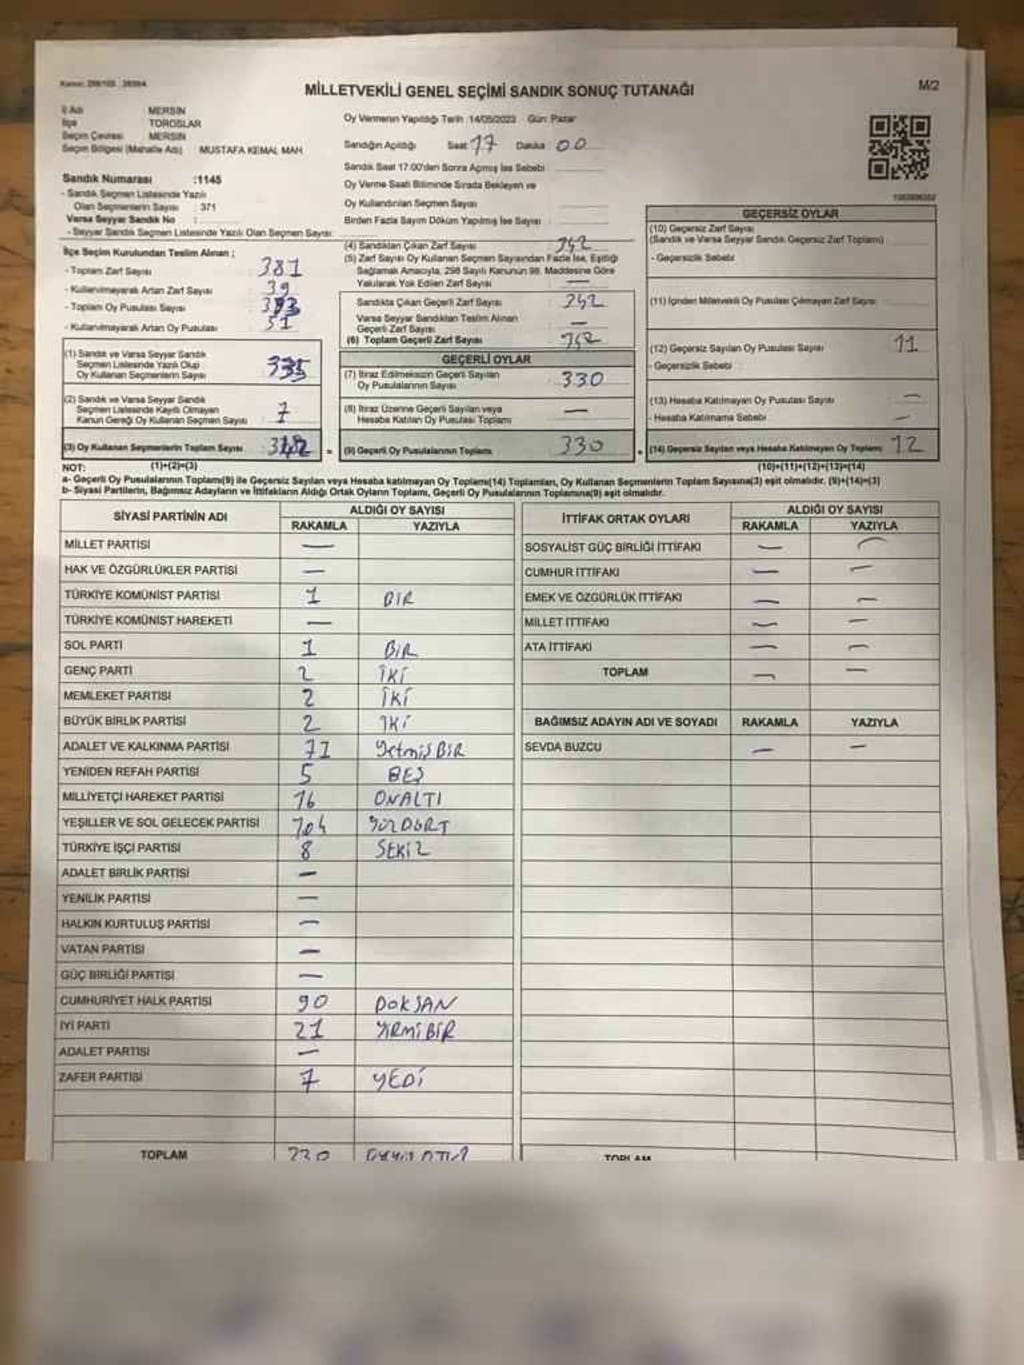 MİLLETVEKİLİ GENEL SEÇİMİ SANDIK SONUÇ TUTANAĞI
M/2
İl Adı MERSİN
İlçe TOROSLAR
Seçim Çevresi MERSİN
Seçim Bölgesi (Mahalle Adı) : MUSTAFA KEMAL MAH
Sandık Numarası :1145
- Sandık Seçmen Listesinde Yazılı
Olan Seçmenlerin Sayısı : 371
Varsa Seyyar Sandık No :
- Seyyar Sandık Seçmen Listesinde Yazılı Olan Seçmen Sayısı:
Oy Vermenin Yapıldığı Tarih :14/05/2023 Gün: Pazar
Sandığın Açıldığı Saat 17 Dakika 00
Sandık Saat 17.00'den Sonra Açmış İse Sebebi :
Oy Verme Saati Bitiminde Sırada Bekleyen ve
Oy Kullandırılan Seçmen Sayısı
Birden Fazla Sayım Döküm Yapılmış İse Sayısı
İlçe Seçim Kurulundan Teslim Alınan ;
- Toplam Zarf Sayısı 381
- Kullanılmayarak Artan Zarf Sayısı 39
- Toplam Oy Pusulası Sayısı
- Kullanılmayarak Artan Oy Pusulası 51
(1) Sandık ve Varsa Seyyar Sandık
Seçmen Listesinde Yazılı Olup
Oy Kullanan Seçmenlerin Sayısı 335
(2) Sandık ve Varsa Seyyar Sandık
Seçmen Listesinde Kayıtlı Olmayan
Kanun Gereği Oy Kullanan Seçmen Sayısı 7
(3) Oy Kullanan Seçmenlerin Toplam Sayısı
(4) Sandıktan Çıkan Zarf Sayısı 342
(5) Zarf Sayısı Oy Kullanan Seçmen Sayısından Fazla İse, Eşitliği
Sağlamak Amacıyla, 298 Sayılı Kanunun 98. Maddesine Göre
Yakılarak Yok Edilen Zarf Sayısı
Sandıkta Çıkan Geçerli Zarf Sayısı 342
Varsa Seyyar Sandıktan Teslim Alınan
Geçerli Zarf Sayısı —
(6) Toplam Geçerli Zarf Sayısı 342
GEÇERLİ OYLAR
(7) İtiraz Edilmeksizin Geçerli Sayılan
Oy Pusulalarının Sayısı 330
(8) İtiraz Üzerine Geçerli Sayılan veya
Hesaba Katılan Oy Pusulası Toplamı —
= (9) Geçerli Oy Pusulalarının Toplamı 330
GEÇERSİZ OYLAR
(10) Geçersiz Zarf Sayısı
(Sandık ve Varsa Seyyar Sandık Geçersiz Zarf Toplamı)
- Geçersizlik Sebebi
(11) İçinden Milletvekili Oy Pusulası Çıkmayan Zarf Sayısı
(12) Geçersiz Sayılan Oy Pusulası Sayısı 11
- Geçersizlik Sebebi :
(13) Hesaba Katılmayan Oy Pusulası Sayısı —
- Hesaba Katılmama Sebebi —
+ (14) Geçersiz Sayılan veya Hesaba Katılmayan Oy Toplamı 12
NOT: (1)+(2)=(3)
(10)+(11)+(12)+(13)=(14)
a- Geçerli Oy Pusulalarının Toplamı(9) ile Geçersiz Sayılan veya Hesaba katılmayan Oy Toplamı(14) Toplamları, Oy Kullanan Seçmenlerin Toplam Sayısına(3) eşit olmalıdır. (9)+(14)=(3)
b- Siyasi Partilerin, Bağımsız Adayların ve İttifakların Aldığı Ortak Oyların Toplamı, Geçerli Oy Pusulalarının Toplamına(9) eşit olmalıdır.
SİYASİ PARTİNİN ADI ALDIĞI OY SAYISI
RAKAMLA YAZIYLA
MİLLET PARTİSİ —
HAK VE ÖZGÜRLÜKLER PARTİSİ —
TÜRKİYE KOMÜNİST PARTİSİ 1 BİR
TÜRKİYE KOMÜNİST HAREKETİ —
SOL PARTİ 1 BİR
GENÇ PARTİ 2 İKİ
MEMLEKET PARTİSİ 2 İKİ
BÜYÜK BİRLİK PARTİSİ 2 İKİ
ADALET VE KALKINMA PARTİSİ 71 YetmişBİR
YENİDEN REFAH PARTİSİ 5 BEŞ
MİLLİYETÇİ HAREKET PARTİSİ 16 ONALTI
YEŞİLLER VE SOL GELECEK PARTİSİ 104 YÜZDÖRT
TÜRKİYE İŞÇİ PARTİSİ 8 SEKİZ
ADALET BİRLİK PARTİSİ —
YENİLİK PARTİSİ —
HALKIN KURTULUŞ PARTİSİ —
VATAN PARTİSİ —
GÜÇ BİRLİĞİ PARTİSİ —
CUMHURİYET HALK PARTİSİ 90 DOKSAN
İYİ PARTİ 21 YİRMİBİR
ADALET PARTİSİ —
ZAFER PARTİSİ 7 YEDİ
TOPLAM 330
İTTİFAK ORTAK OYLARI ALDIĞI OY SAYISI
RAKAMLA YAZIYLA
SOSYALİST GÜÇ BİRLİĞİ İTTİFAKI — —
CUMHUR İTTİFAKI — —
EMEK VE ÖZGÜRLÜK İTTİFAKI — —
MİLLET İTTİFAKI — —
ATA İTTİFAKI — —
TOPLAM — —
BAĞIMSIZ ADAYIN ADI VE SOYADI RAKAMLA YAZIYLA
SEVDA BUZCU — —
TOPLAM